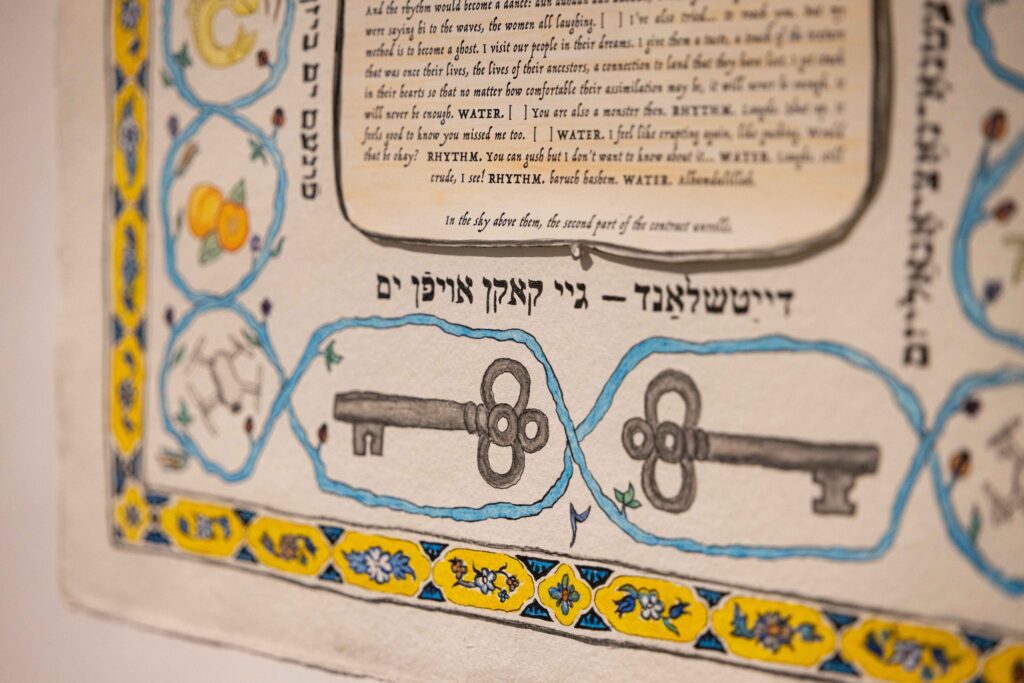 And the rhythm would become a dance: dun
were saying hi to the waves, the women all laughing. [ ] I've also tried... to reach you. but my
method is to become a ghost. I visit our people in their dreams. I give them a taste, a touch of the
that was once their lives, the lives of their ancestors, a connection to land that they have lost. I get stuck
in their hearts so that no matter how comfortable their assimilation may be, it will never be enough. it
will never be enough. WATER. [ ] You are also a monster then. RHYTHM. Laughs. Shut up. It
feels good to know you missed me too. [ ] WATER. I feel like erupting again, like gushing. Would
that be okay? RHYTHM. You can gush but I don't want to know about it... WATER. Laughs. still
crude, I see! RHYTHM. baruch hashem. WATER. Alhamdulillah.
In the sky above them, the second part of the contract unrolls.
דייִטשלאַנד – גיי קאקן אויפֿן ים
פונעם ים ביזן